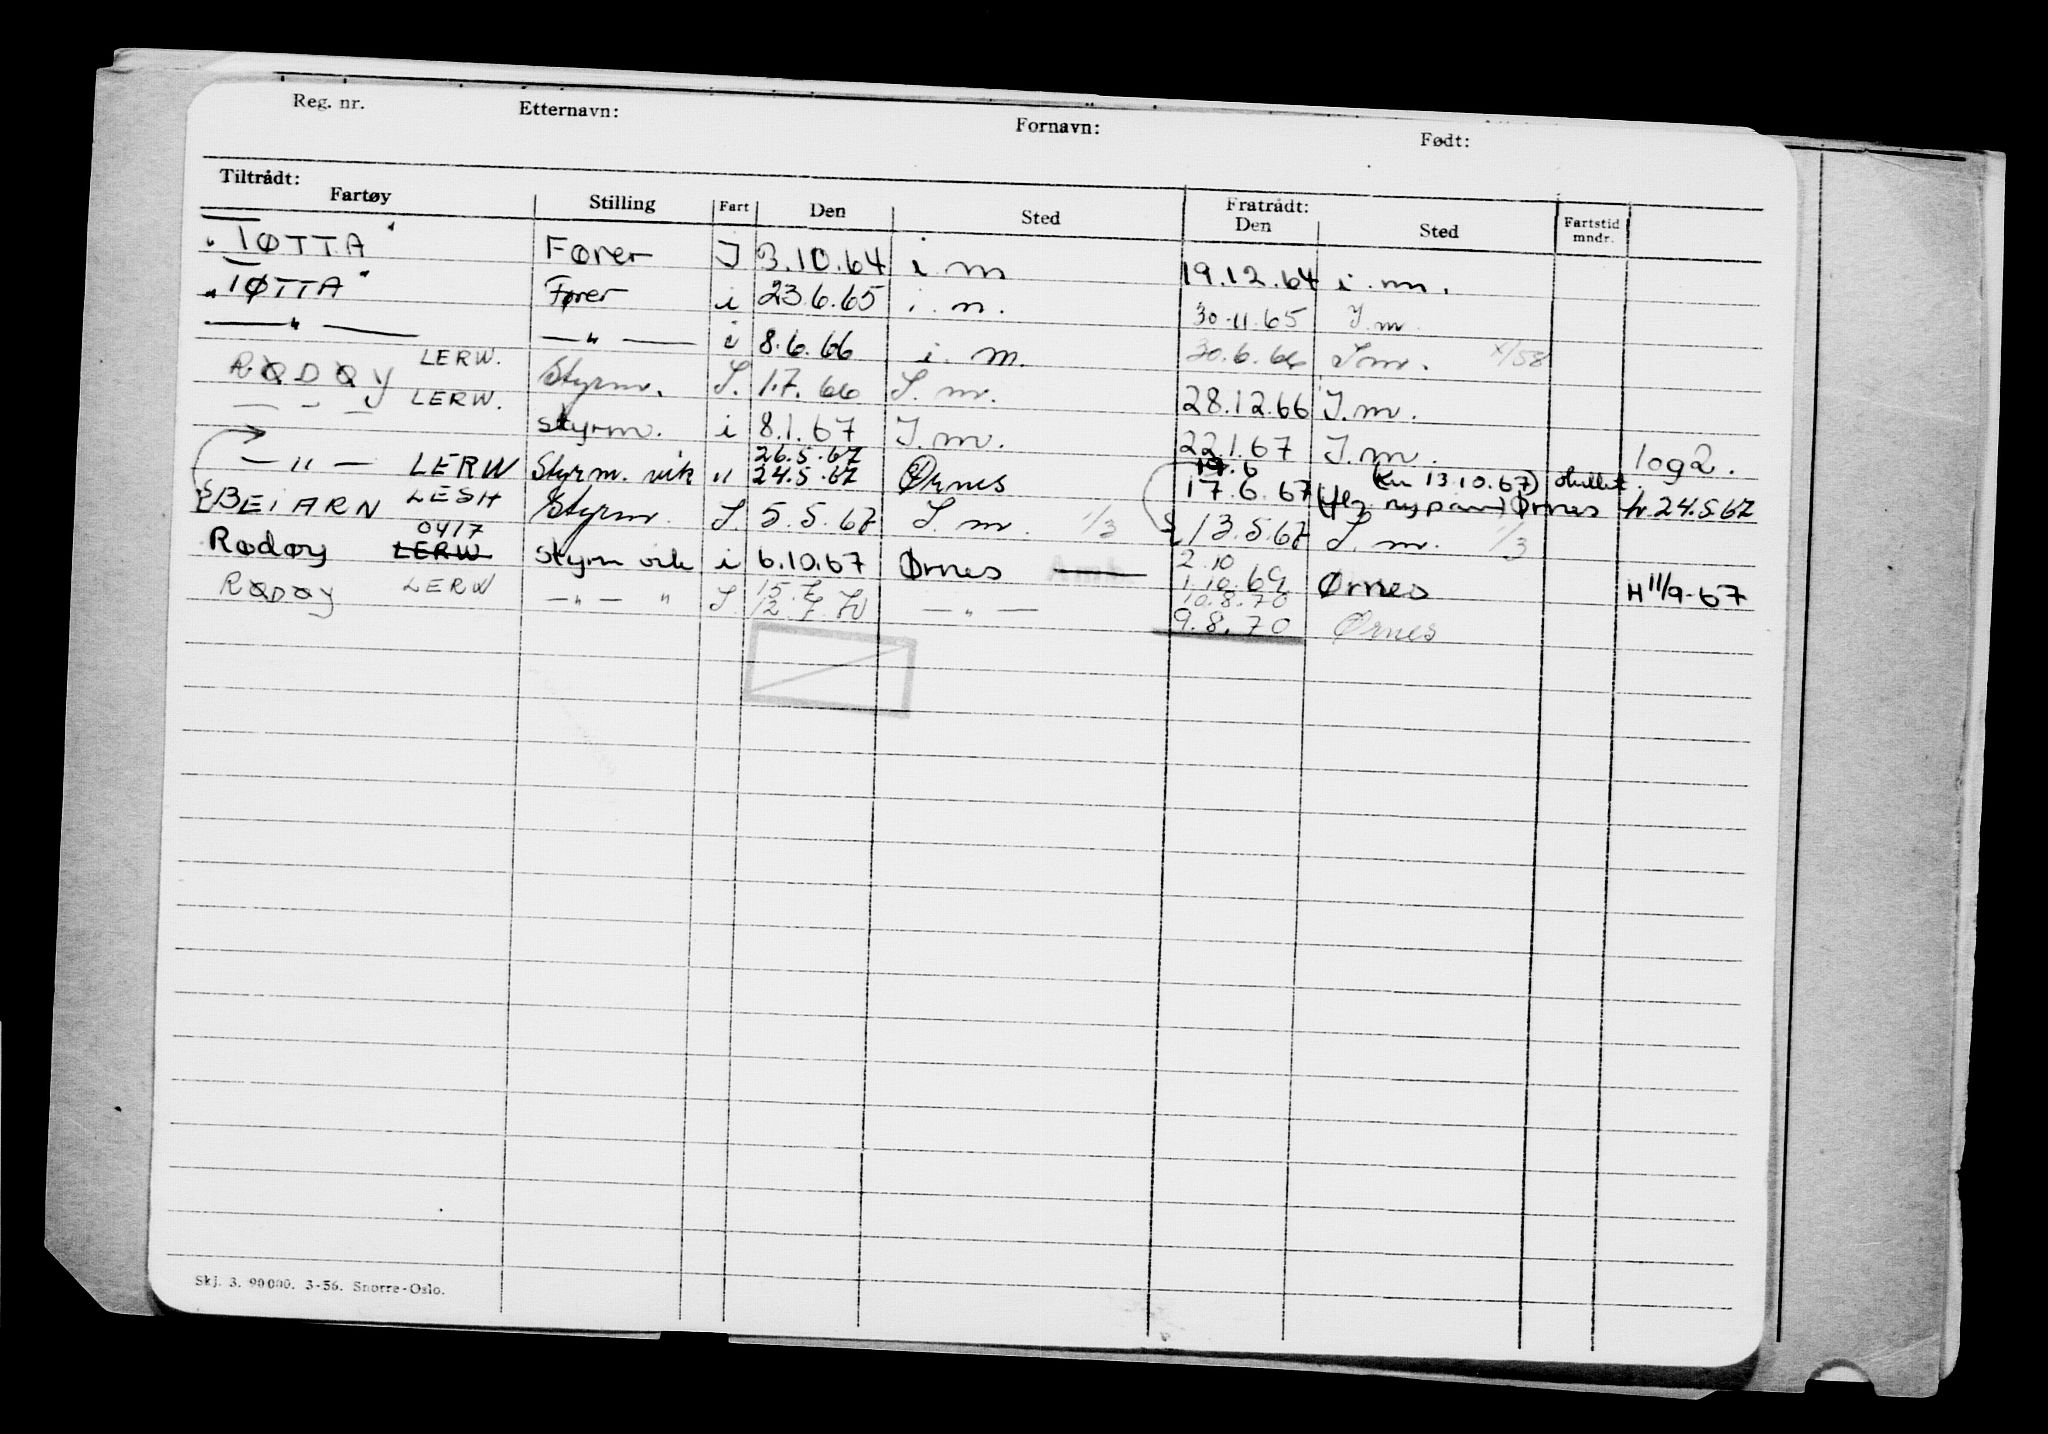 Reg. nr. Etternavn: Fornavn: Født:
Tiltrådt: Fratrådt:
Fartøy Stilling Fart Den Sted Den Sted Fartstid mndr.
"TØTTA" Fører I 3.10.64 i m 19.12.64 i.m.
"TØTTA" Fører i 23.6.65 i.m. 30.11.65 I.m.
—"— —"— i 8.6.66 i.m. 30.6.66 I.m. X/58
RØDØY LERW. Styrm. I. 1.7.66 I.m. 28.12.66 I.m.
— " — LERW. styrm. i 8.1.67 I.m. 22.1.67 I.m. log 2.
26.5.67 19.6 13.10.67)
—"— LERW Styrm. vik " 24.5.67 Ørnes 17.6.67 Ørnes 24.5.67
BEIARN LESH Styrm. I. 5.5.67 I.m. 1/3 13.5.67 I.m. 1/3
0417 2.10
Rødøy LERW styrm vik i 6.10.67 Ørnes 1.10.69 Ørnes H 11/9-67
15.7 10.8.70
RØDØY LERW —"— " I. 12.7.70 —"— 9.8.70 Ørnes
Skj. 3. 90 000. 3-56. Snorre-Oslo.